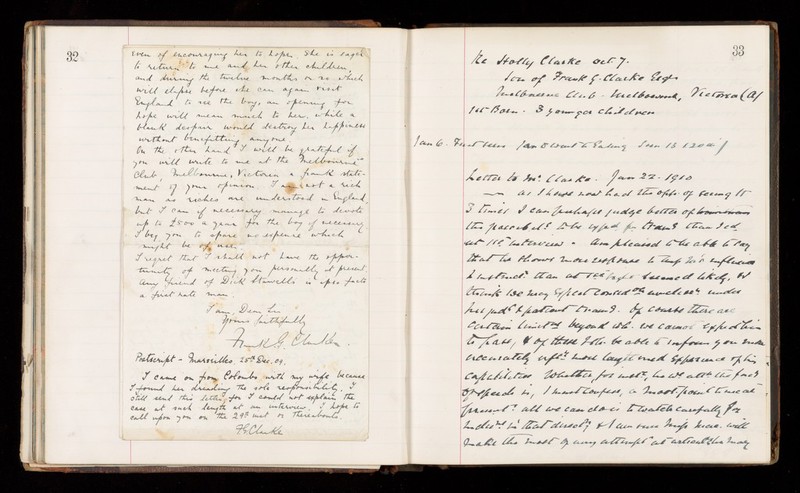 32
even of encouraging her to hope. She is eager
to return to me and her other children,
and during the twelve months or so which
will elapse before she can again visit
England to see the boy, an opening for
hope will mean much to her, while a
blank despair would destroy her happiness
without benefitting anyone.
On the other hand I will be grateful if
you will write to me at the Melbourne
Club, Melbourne, Victoria a frank state-
ment of your opinion. I am not a rich
man as riches are understood in England,
but I can if necessary manage to devote
up to £800 a year for the boy if necessary
I beg you to spare no expense which
might be of use.
I regret that I shall not have the oppor-
tunity of meeting you personally at present.
Any friend of Dick Stawells is ipso facto
a first rate man.
I am, Dear Sir
Yours faithfully
Frank G. Clarke.
Postscript - Marseilles, 25th Dec. 09.
I came on from Colombo with my wife because
I found her dreading the sole responsibility. I
still send this letter, for I could not explain the
case at such length at an interview. I hope to
call upon you on the 29th inst or thereabouts.
FGClarke
33
Re Holly Clarke aet 7.
Son of Frank G. Clarke Esqre
Melbourne Club. Melbourne, Victoria
1st Born. 3 younger children
Jan 6. First seen
Letter to Mr. Clarke. Jan 22. 1910
As I have now had the opp. of seeing H
3 times I can perhaps judge better of
the possibilt. to be expd. from than I cd.
at 1st interview. Am pleased to be able to say
that he shows more response to
than at seemed likely, &
think we may expect under
& patient. Of course there are
certain beyond wh. we cannot expect him
to pass, & of these I able to inform you more
accurately after more lengthened experience of his
capabilities. Whether, for inst.
depends is, I must confess, a moot point to me at
present. all we can do is to watch carefully for
in that direct. & I am sure Miss will
make the most of any attempt at he may